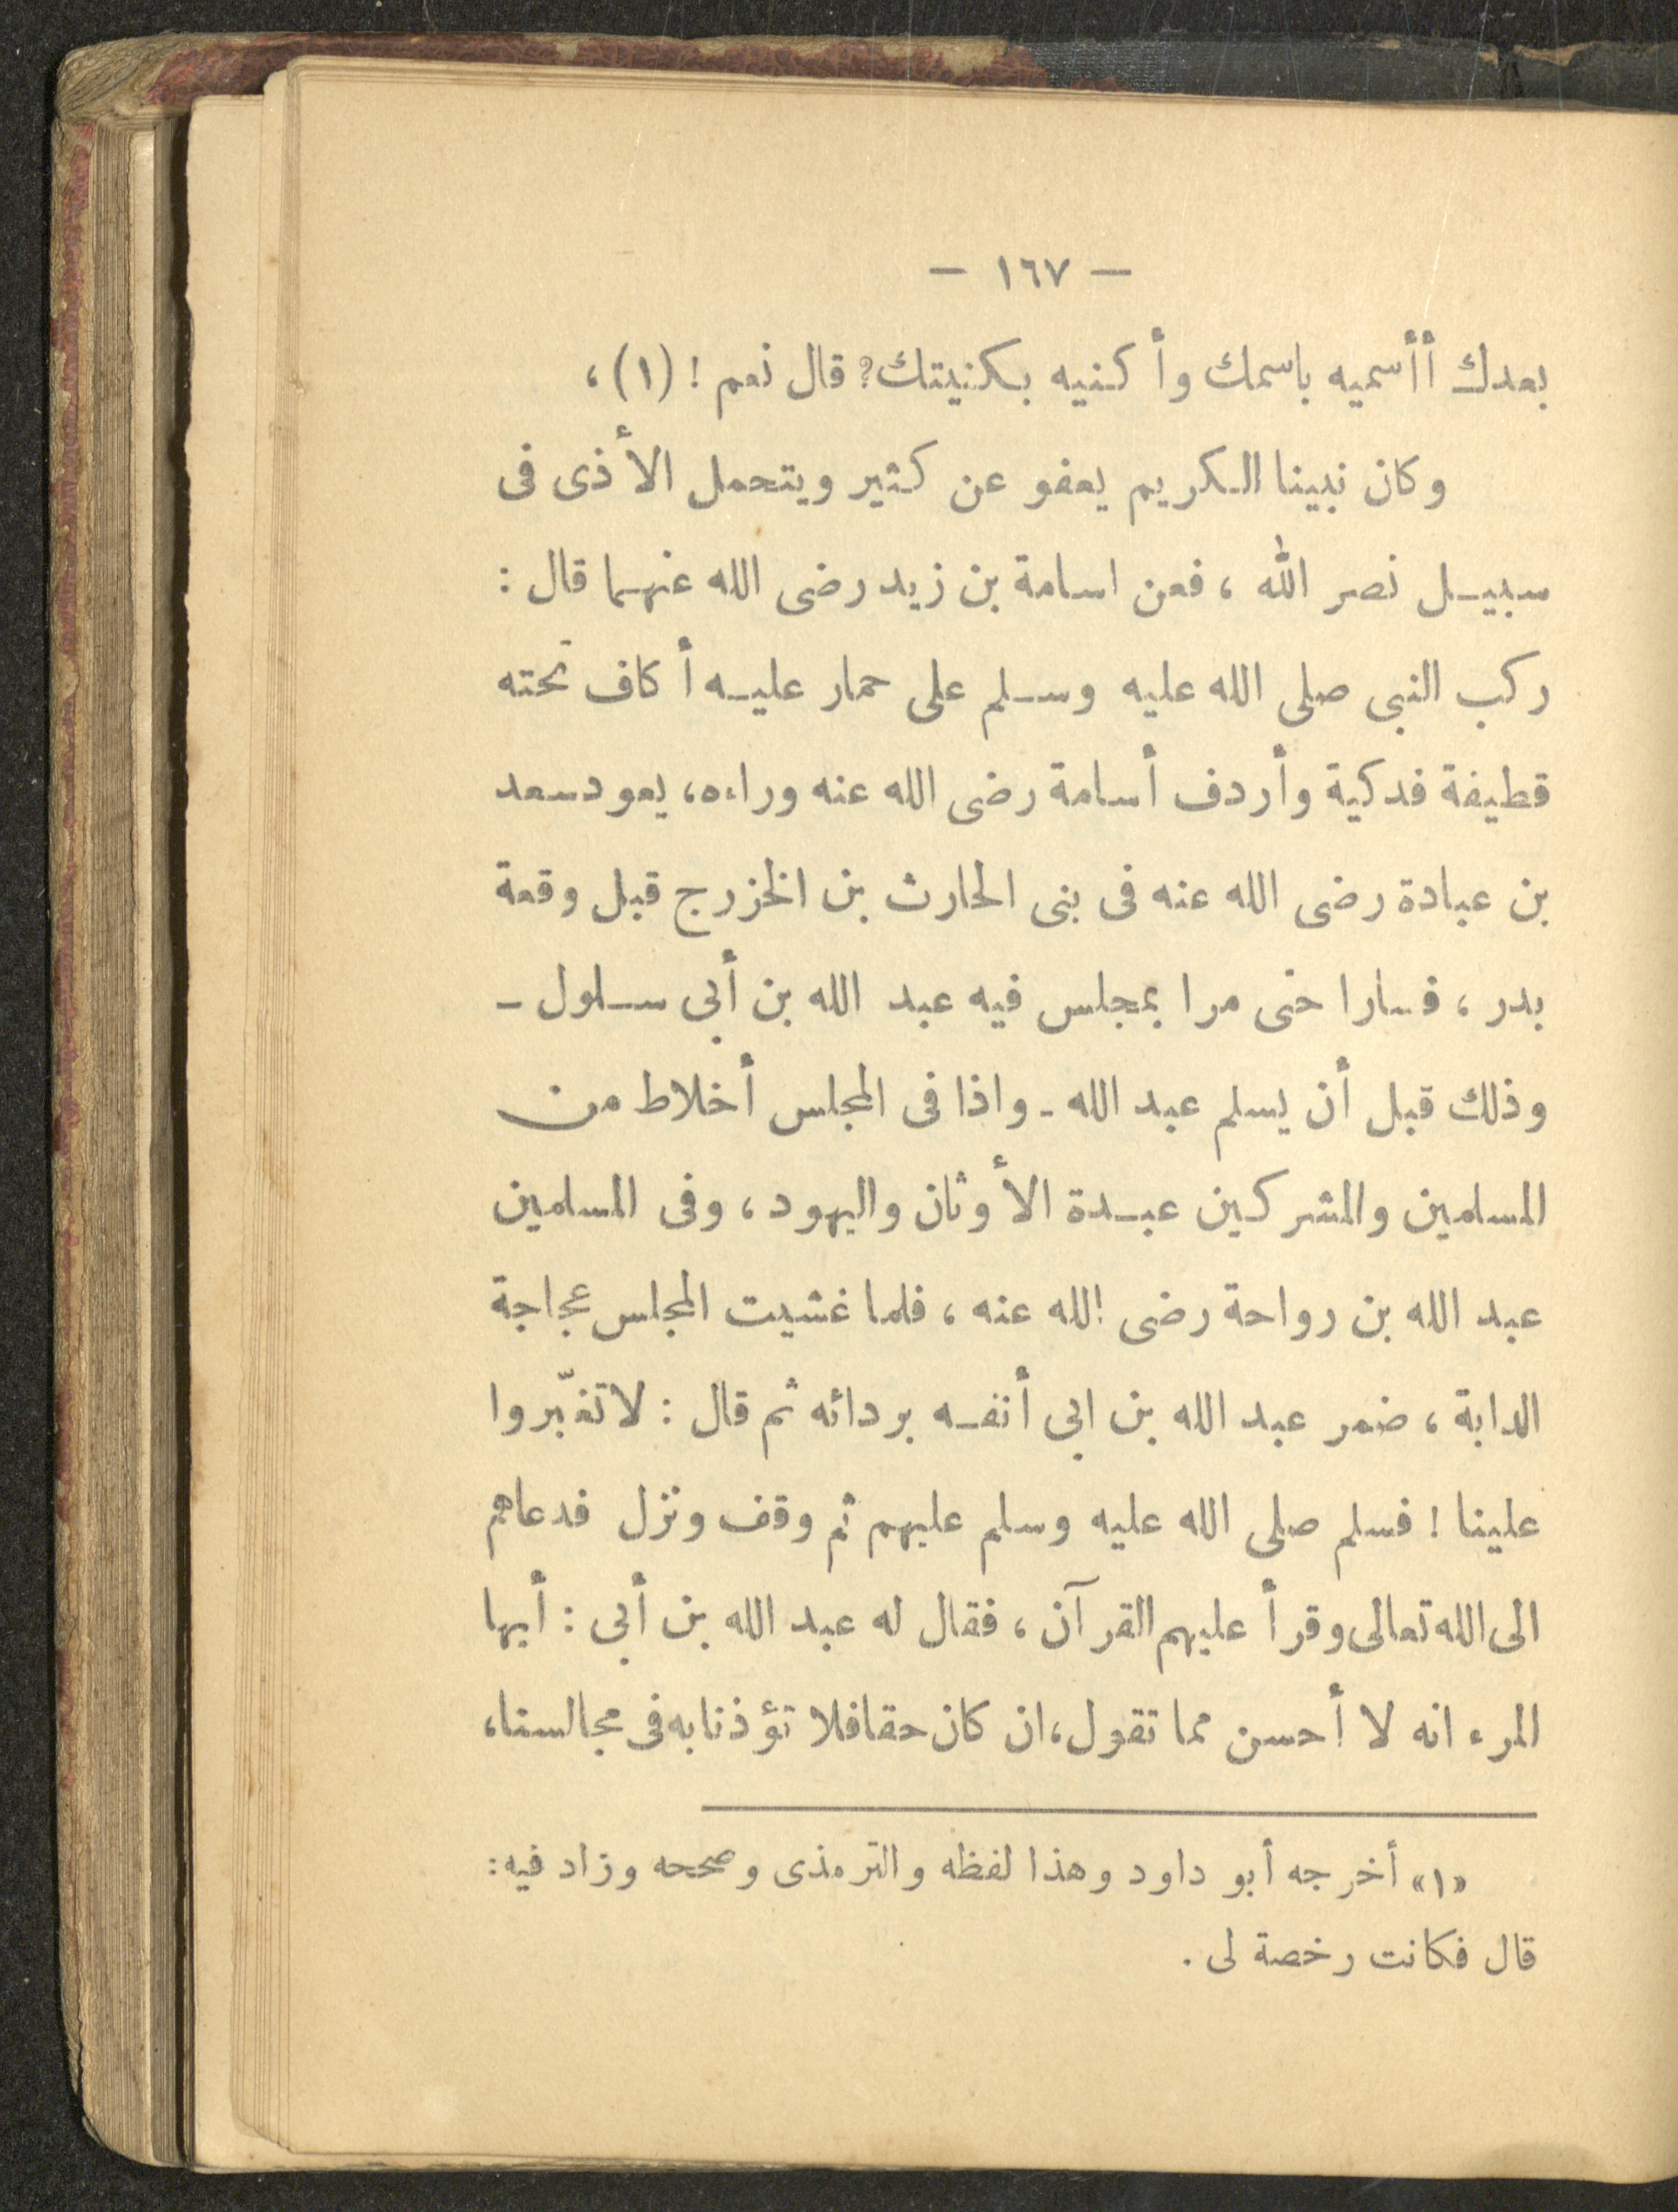 — ١٦٧ —
بعدك أأسميه باسمك وأكنيه بكنيتك؟ قال نعم ! (١) ،
وكان نبينا الكريم يعفو عن كثير ويتحمل الأذى فى
سبيل نصر الله ، فعن اسامة بن زيد رضى الله عنهما قال :
ركب النبى صلى الله عليه وسلم على حمار عليه أكاف تحته
قطيفة فدكية وأردف أسامة رضى الله عنه وراءه، يعود سعد
بن عبادة رضى الله عنه فى بنى الحارث بن الخزرج قبل وقعة
بدر ، فسارا حتى مرا بمجلس فيه عبد الله بن أبي سلول -
وذلك قبل أن يسلم عبد الله - واذا فى المجلس أخلاط من
المسلمين والمشركين عبدة الأوثان واليهود ، وفى المسلمين
عبد الله بن رواحة رضى الله عنه ، فلما غشيت المجلس عجاجة
الدابة ، ضمر عبد الله بن ابي أنفه بردائه ثم قال : لا تغبّروا
علينا ! فسلم صلى الله عليه وسلم عليهم ثم وقف ونزل فدعاهم
الى الله تعالى وقرأ عليهم القرآن ، فقال له عبد الله بن أبي : أيها
المرء انه لا أحسن مما تقول، ان كان حقا فلا تؤذنا به فى مجالسنا،
«١» أخرجه أبو داود وهذا لفظه والترمذى وصححه وزاد فيه:
قال فكانت رخصة لى .